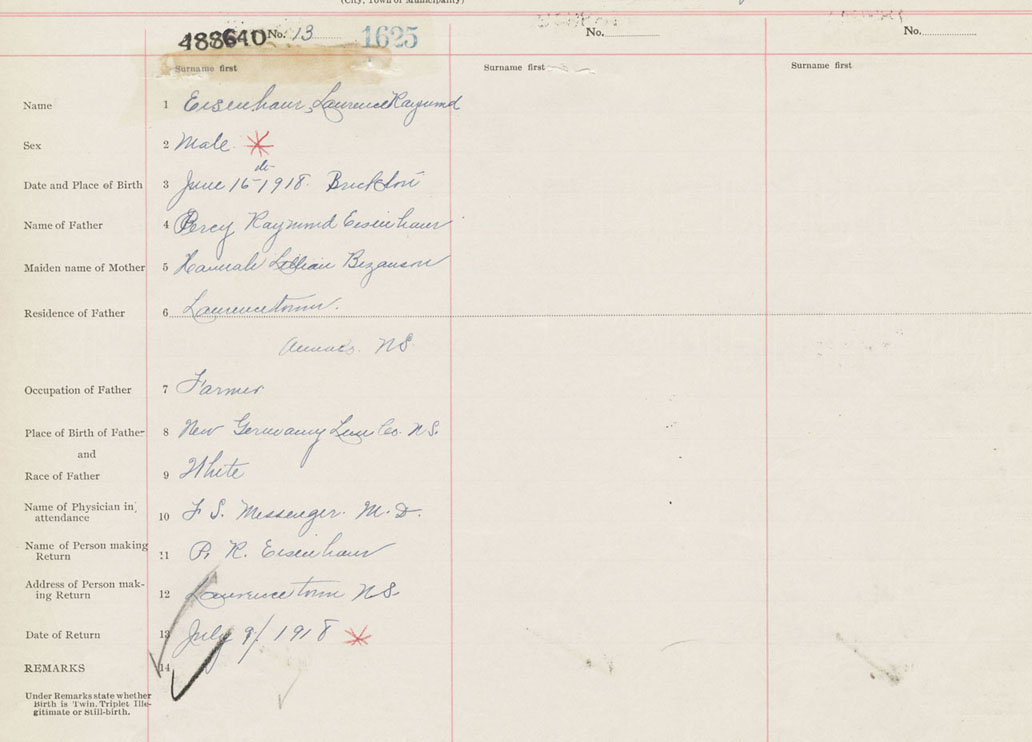 (City, Town or Municipality)
488640 No. 13 1625 No. No.
Surname first Surname first Surname first
Name 1 Eisenhaur, Laurence Raymond
Sex 2 Male
Date and Place of Birth 3 June 16th 1918. Brickton
Name of Father 4 Percy Raymond Eisenhaur
Maiden name of Mother 5 Hannah Lillian Bezanson
Residence of Father 6 Laurencetown.
NS
Occupation of Father 7 Farmer
Place of Birth of Father 8 New Germany Lun Co. N.S.
and
Race of Father 9 White
Name of Physician in
attendance 10 F S. Messenger. M.D.
Name of Person making
Return 11 P. R. Eisenhaur
Address of Person mak-
ing Return 12 Laurencetown NS.
Date of Return 13 July 9/1918
REMARKS 14
Under Remarks state whether
Birth is Twin. Triplet Ille-
gitimate or Still-birth.